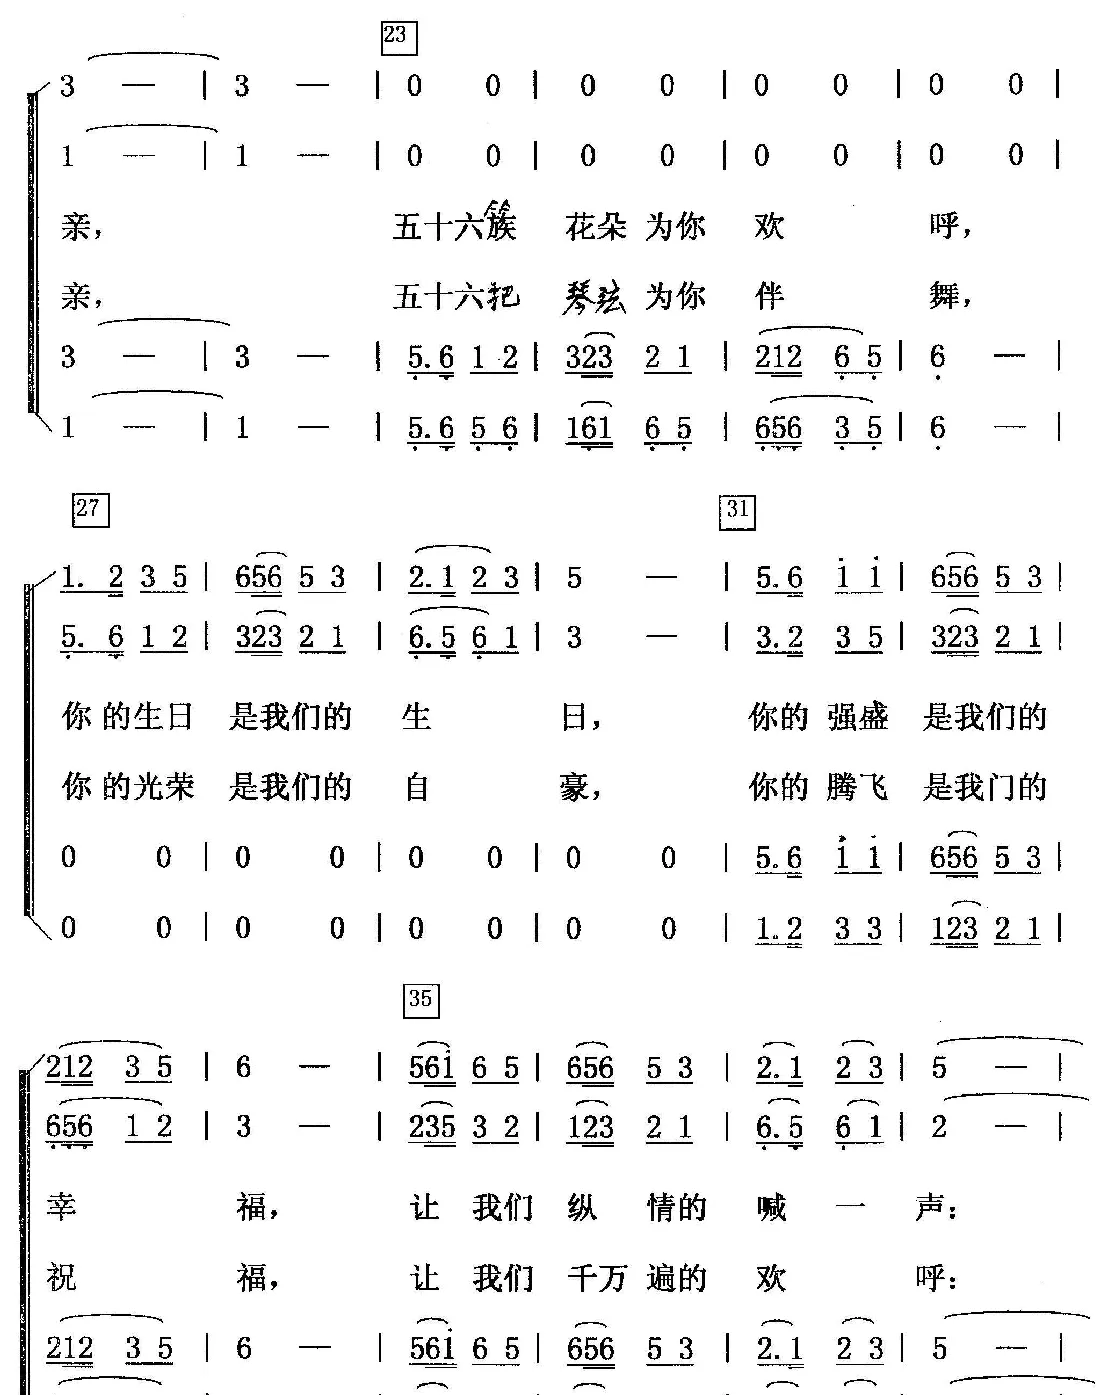 23
3 — | 3 — | 0 0 | 0 0 | 0 0 | 0 0 |
1 — | 1 — | 0 0 | 0 0 | 0 0 | 0 0 |
亲, 五十六族 花朵 为你 欢 呼,
亲, 五十六把 琴弦 为你 伴 舞,
3 — | 3 — | 5.6 1 2 | 323 2 1 | 212 6 5 | 6 — |
1 — | 1 — | 5.6 5 6 | 161 6 5 | 656 3 5 | 6 — |
27 31
1. 2 3 5 | 656 5 3 | 2.1 2 3 | 5 — | 5.6 1 1 | 656 5 3 |
5. 6 1 2 | 323 2 1 | 6.5 6 1 | 3 — | 3.2 3 5 | 323 2 1 |
你 的生日 是我们的 生 日, 你的 强盛 是我们的
你 的光荣 是我们的 自 豪, 你的 腾飞 是我门的
0 0 | 0 0 | 0 0 | 0 0 | 5.6 1 1 | 656 5 3 |
0 0 | 0 0 | 0 0 | 0 0 | 1.2 3 3 | 123 2 1 |
35
212 3 5 | 6 — | 561 6 5 | 656 5 3 | 2.1 2 3 | 5 — |
656 1 2 | 3 — | 235 3 2 | 123 2 1 | 6.5 6 1 | 2 — |
幸 福, 让 我们 纵 情的 喊 一 声:
祝 福, 让 我们 千万 遍的 欢 呼:
212 3 5 | 6 — | 561 6 5 | 656 5 3 | 2.1 2 3 | 5 — |